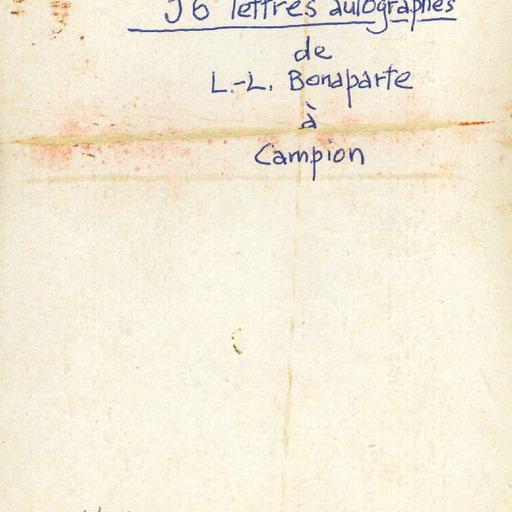 lettres autographes
de
L.-L. Bonaparte
à
Campion